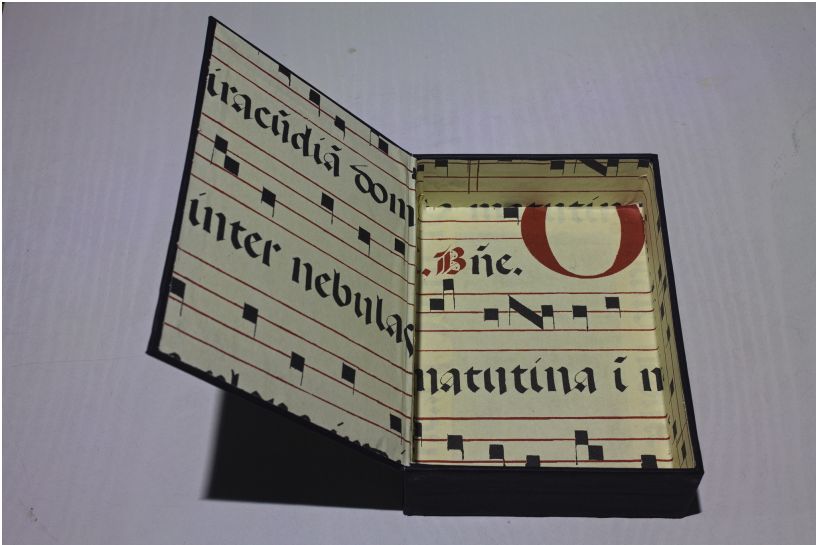 iracūdiā dom
inter nebulas
O
.Bñe.
matutina ī n